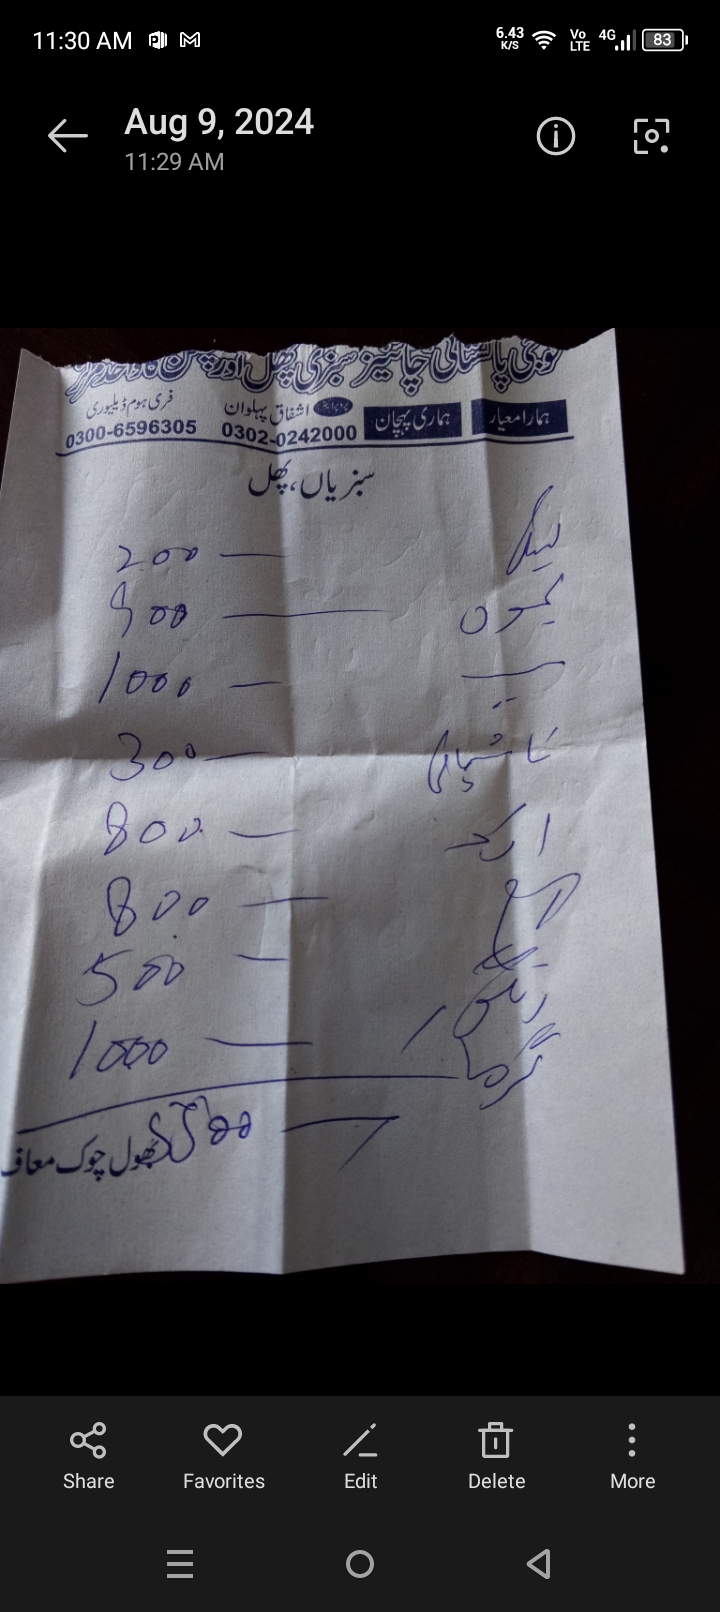 11:30 AM
6.43 K/S Vo LTE 4G 83
Aug 9, 2024
11:29 AM
پاکستانی چائنیز سبزی پھل اور
ہمارا معیار ہماری پہچان پروپرائیٹر اشفاق پہلوان فری ہوم ڈیلیوری
0302-0242000 0300-6596305
سبزیاں، پھل
200 —
لیموں — 900
سیب — 1000
ناشپاتی — 300
ادرک — 800
آم — 800
500 —
گرما — 1000
5500 —
بھول چوک معاف
Share Favorites Edit Delete More